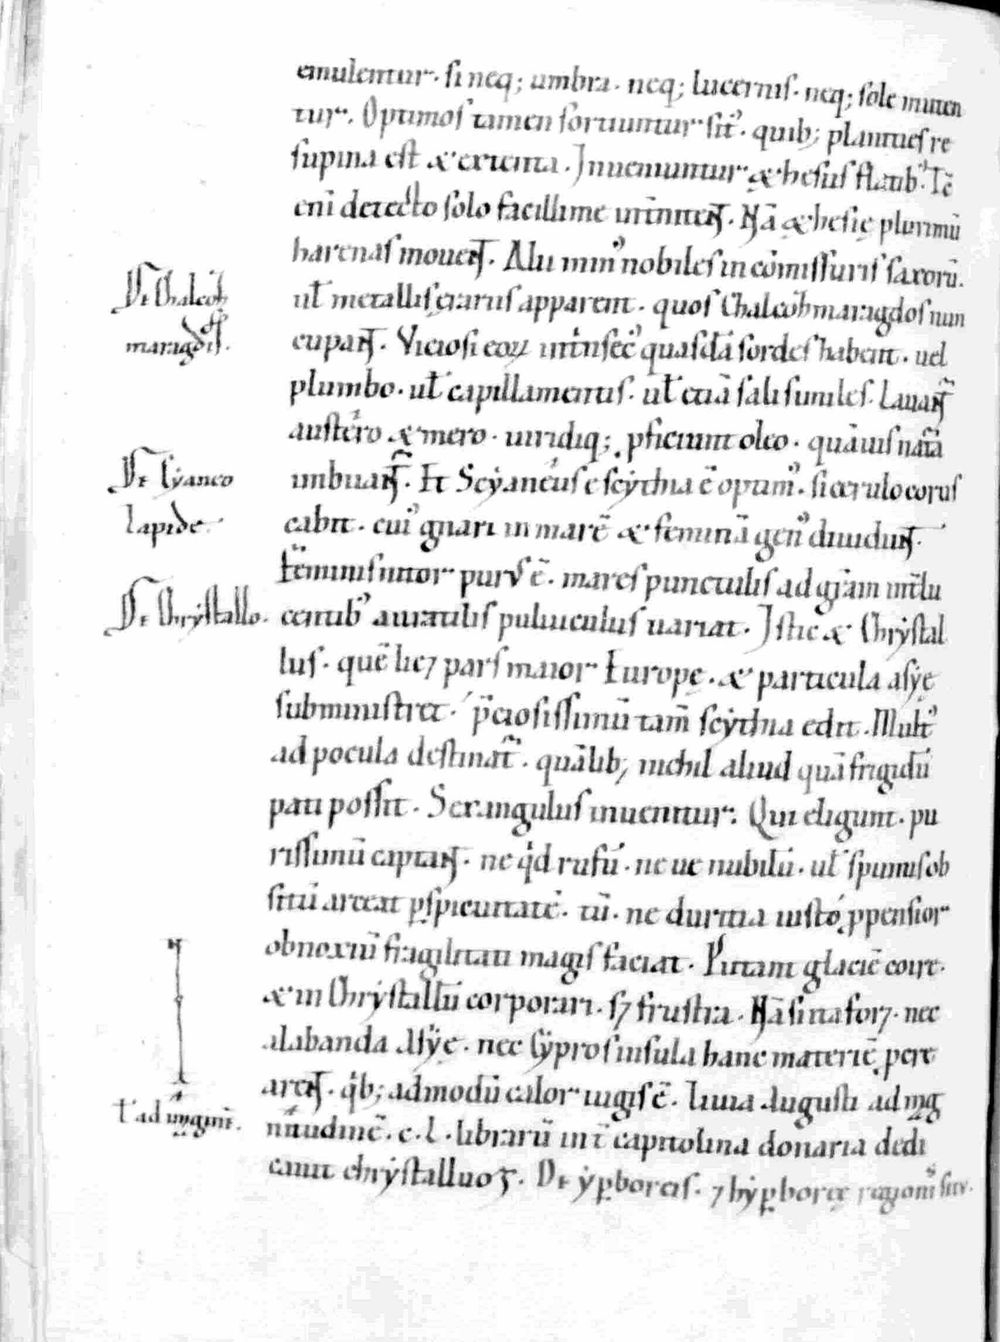 emulentur. si neq; umbra. neq; lucernis. neq; sole muten
tur. Optimos tamen sortiuntur sit᷒. quib; planities re
supina est & extenta. Inueniuntur & hesiis flatib᷒. Tc̄
eni detecto solo facillime intnitent. Nā & hesie plurimū
harenas mouent. Alii min᷒ nobiles in cōmissuris saxorū.
De Chalcos
maragdis.
ul metallis erariis apparent. quos Chalcosmaragdos nun
cupant. Viciosi eoꝝ intrinsec᷒ quasdā sordes habent. uel
plumbo. ul capillamentis. ul etiā sali similes. Lauant
austero & mero. uiridiq; pficiunt oleo. quāuis natā
De Cyaneo
lapide.
imbuant. Et Scyaneus e scythia ē optim᷒. si cerulo corus
cabit. cui᷒ gnari in marē & feminā gen᷒ diuidunt.
feminis nitor purus ē. mares punctulis ad grām int̄lu
De Chrystallo.
centib᷒ auratilis puluiculus uariat. Istic & Chrystal
lus. quē licꝫ pars maior Europe. & particula asye
subministret. p̄ciosissimū tam̄ scythia edit. Mult᷒
ad pocula destinat᷒. quālib; nichil aliud quā frigidū
pati possit. Sexangulus inuenitur. Qui eligunt. pu
rissimū captant. ne qd rufū. ne ue nubilū. ul spumis ob
sitū arceat ꝑspicuitatē. tū. ne duritia iusto ꝓpensior
obnoxiū fragilitati magis faciat. Putant glaciē coire.
& in Chrystallū corporari. sꝫ frustra. Nā si ita forꝫ. nec
alabanda Asye. nec Cypros insula hanc materiē pere
arent. qb; admodū calor iugis ē. Liuia Augusti ad mag
ł ad inginī.
nitudinē. c.l. librarū int̄ capitolina donaria dedi
cauit chrystalluo. De yꝑboreis. ⁊ hyꝑboree regionis situ.